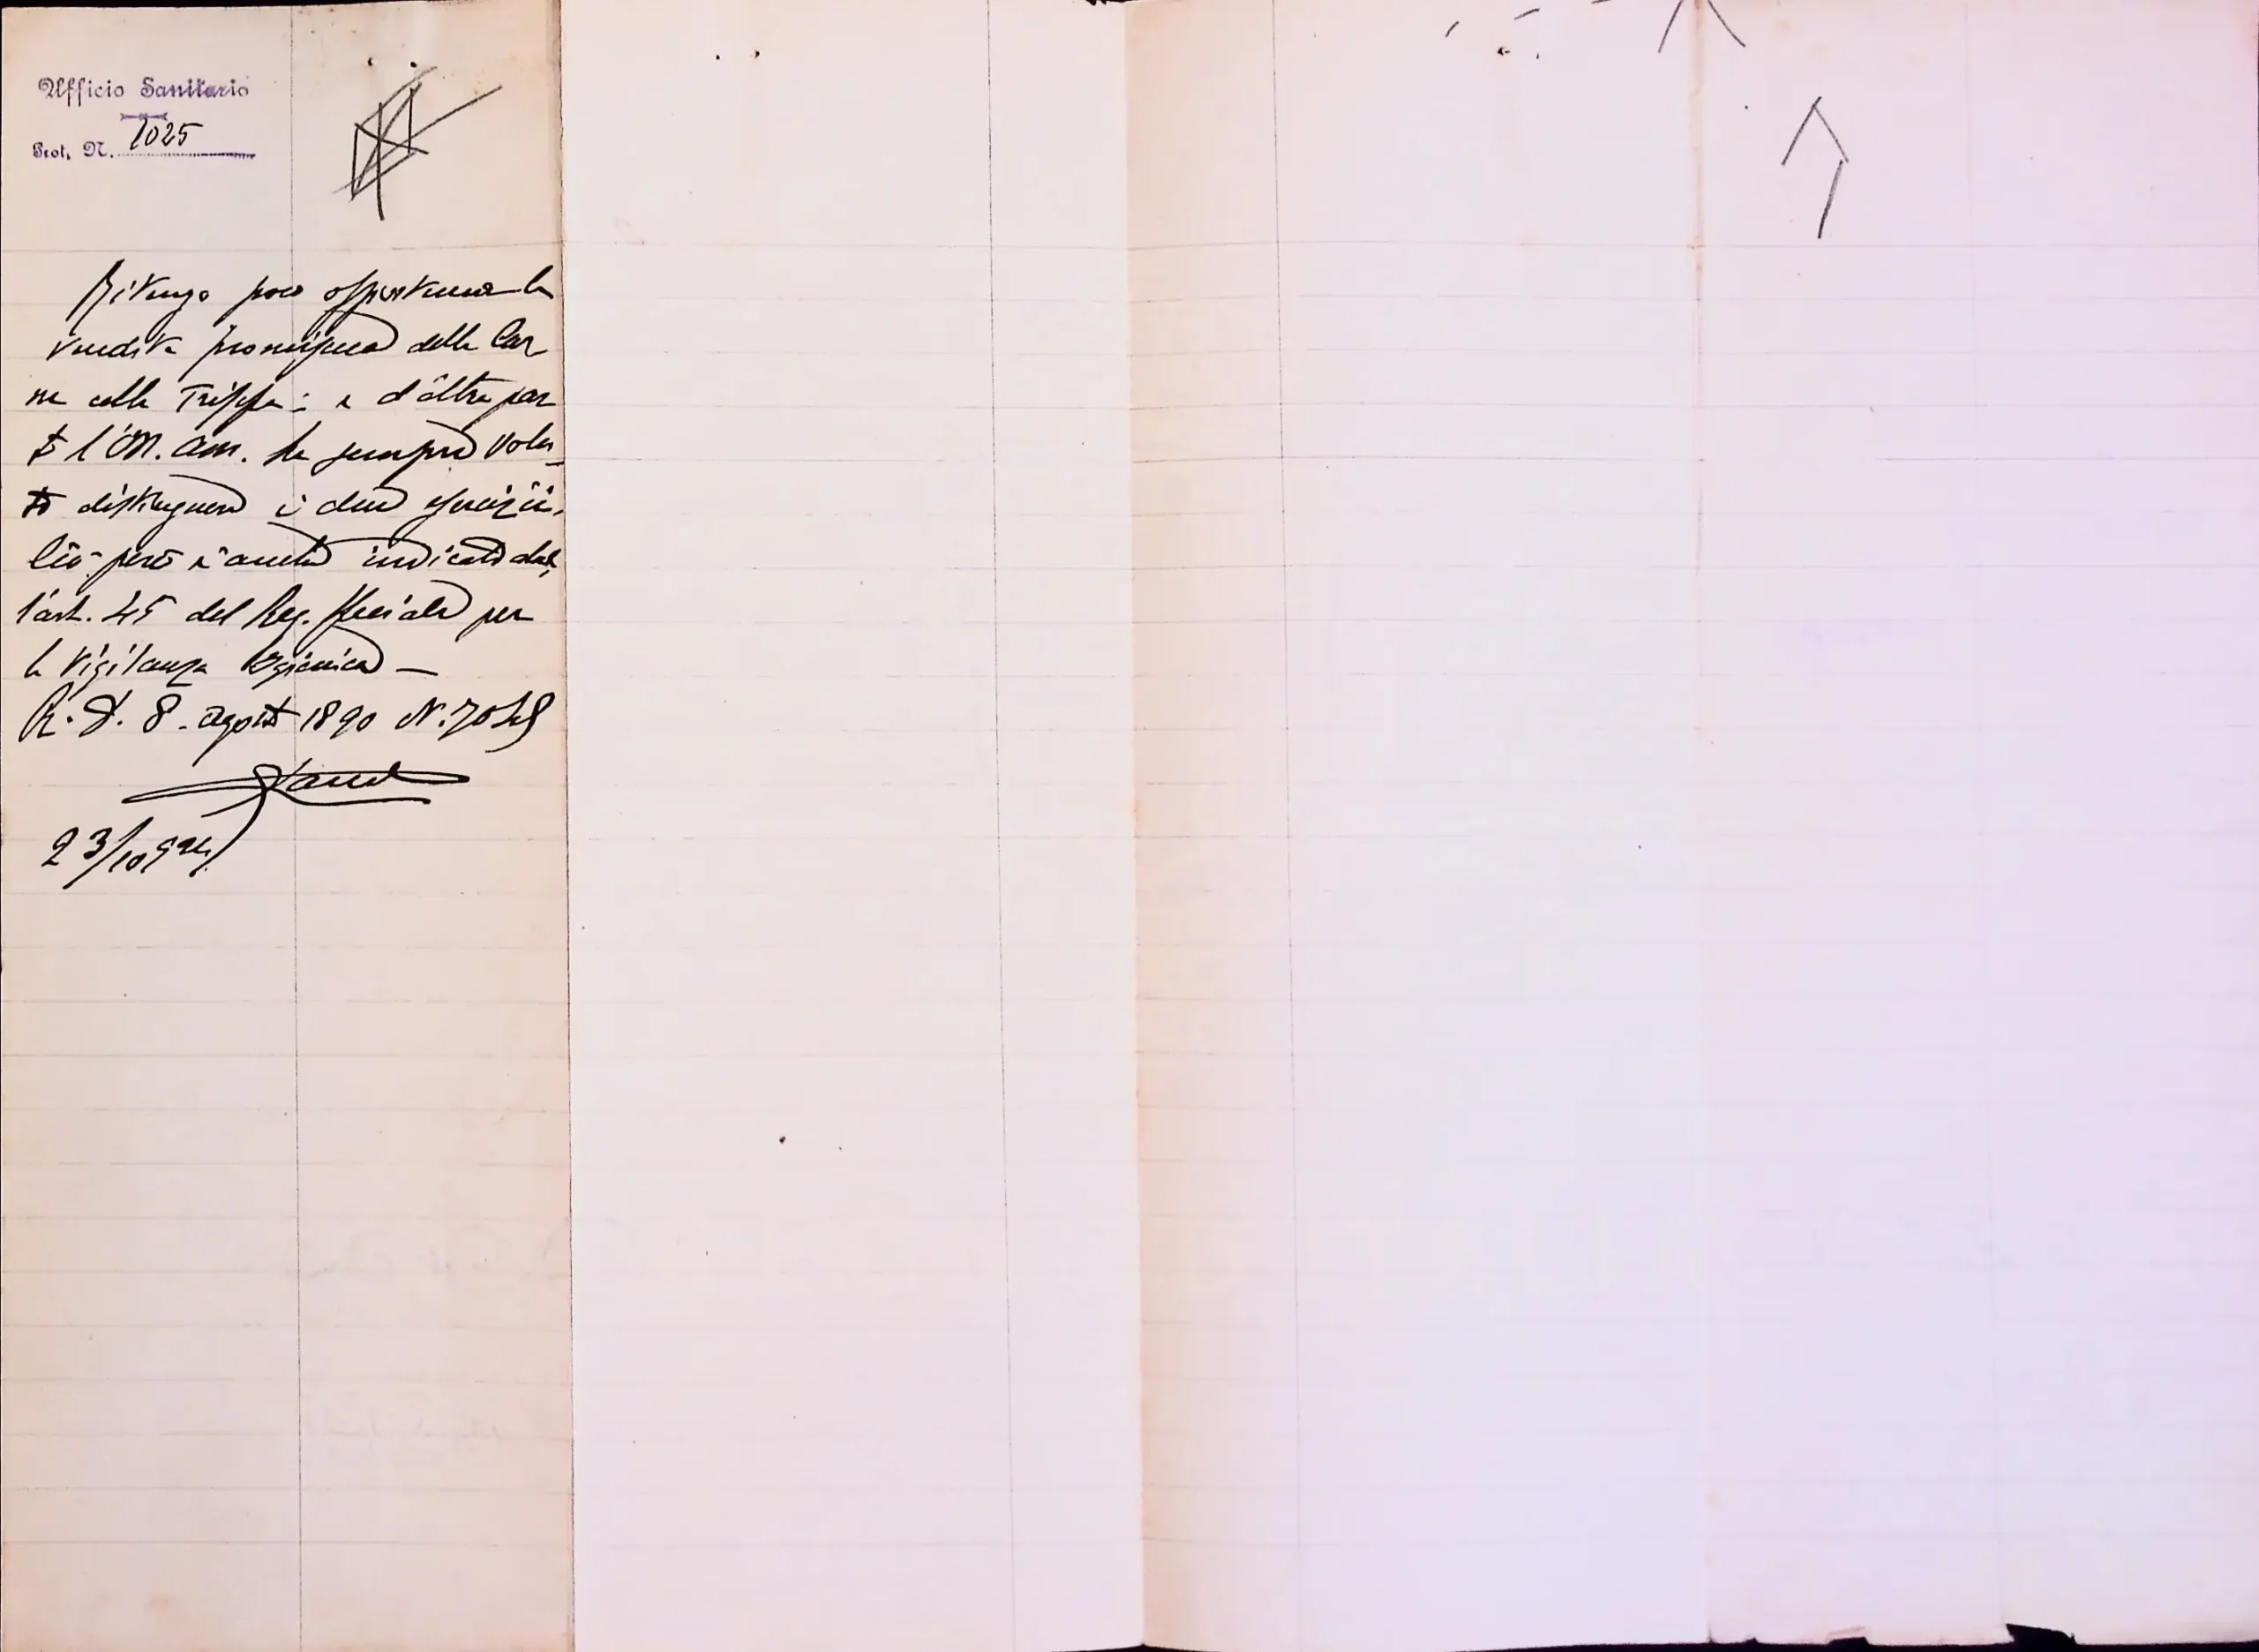 Ufficio Sanitario
Prot. N. 1025
Ritengo poco opportuna la
vendita promiscua della Car
ne colla Trippa: e d'altra par
te l'On. Am. ha sempre volu-
to distinguere i due esercizii.
Ciò però è anche indicato dal,
l'art. 45 del Reg. speciale per
la Vigilanza Igienica —
R. D. 8. agosto 1890 N. 7045
23/10